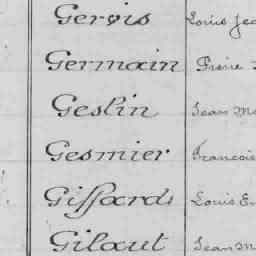 Gervis Louis Jea
Germain Pierre
Geslin Jean Ma
Gesmier Francois
Giffard Louis En
Gilaut Jean M